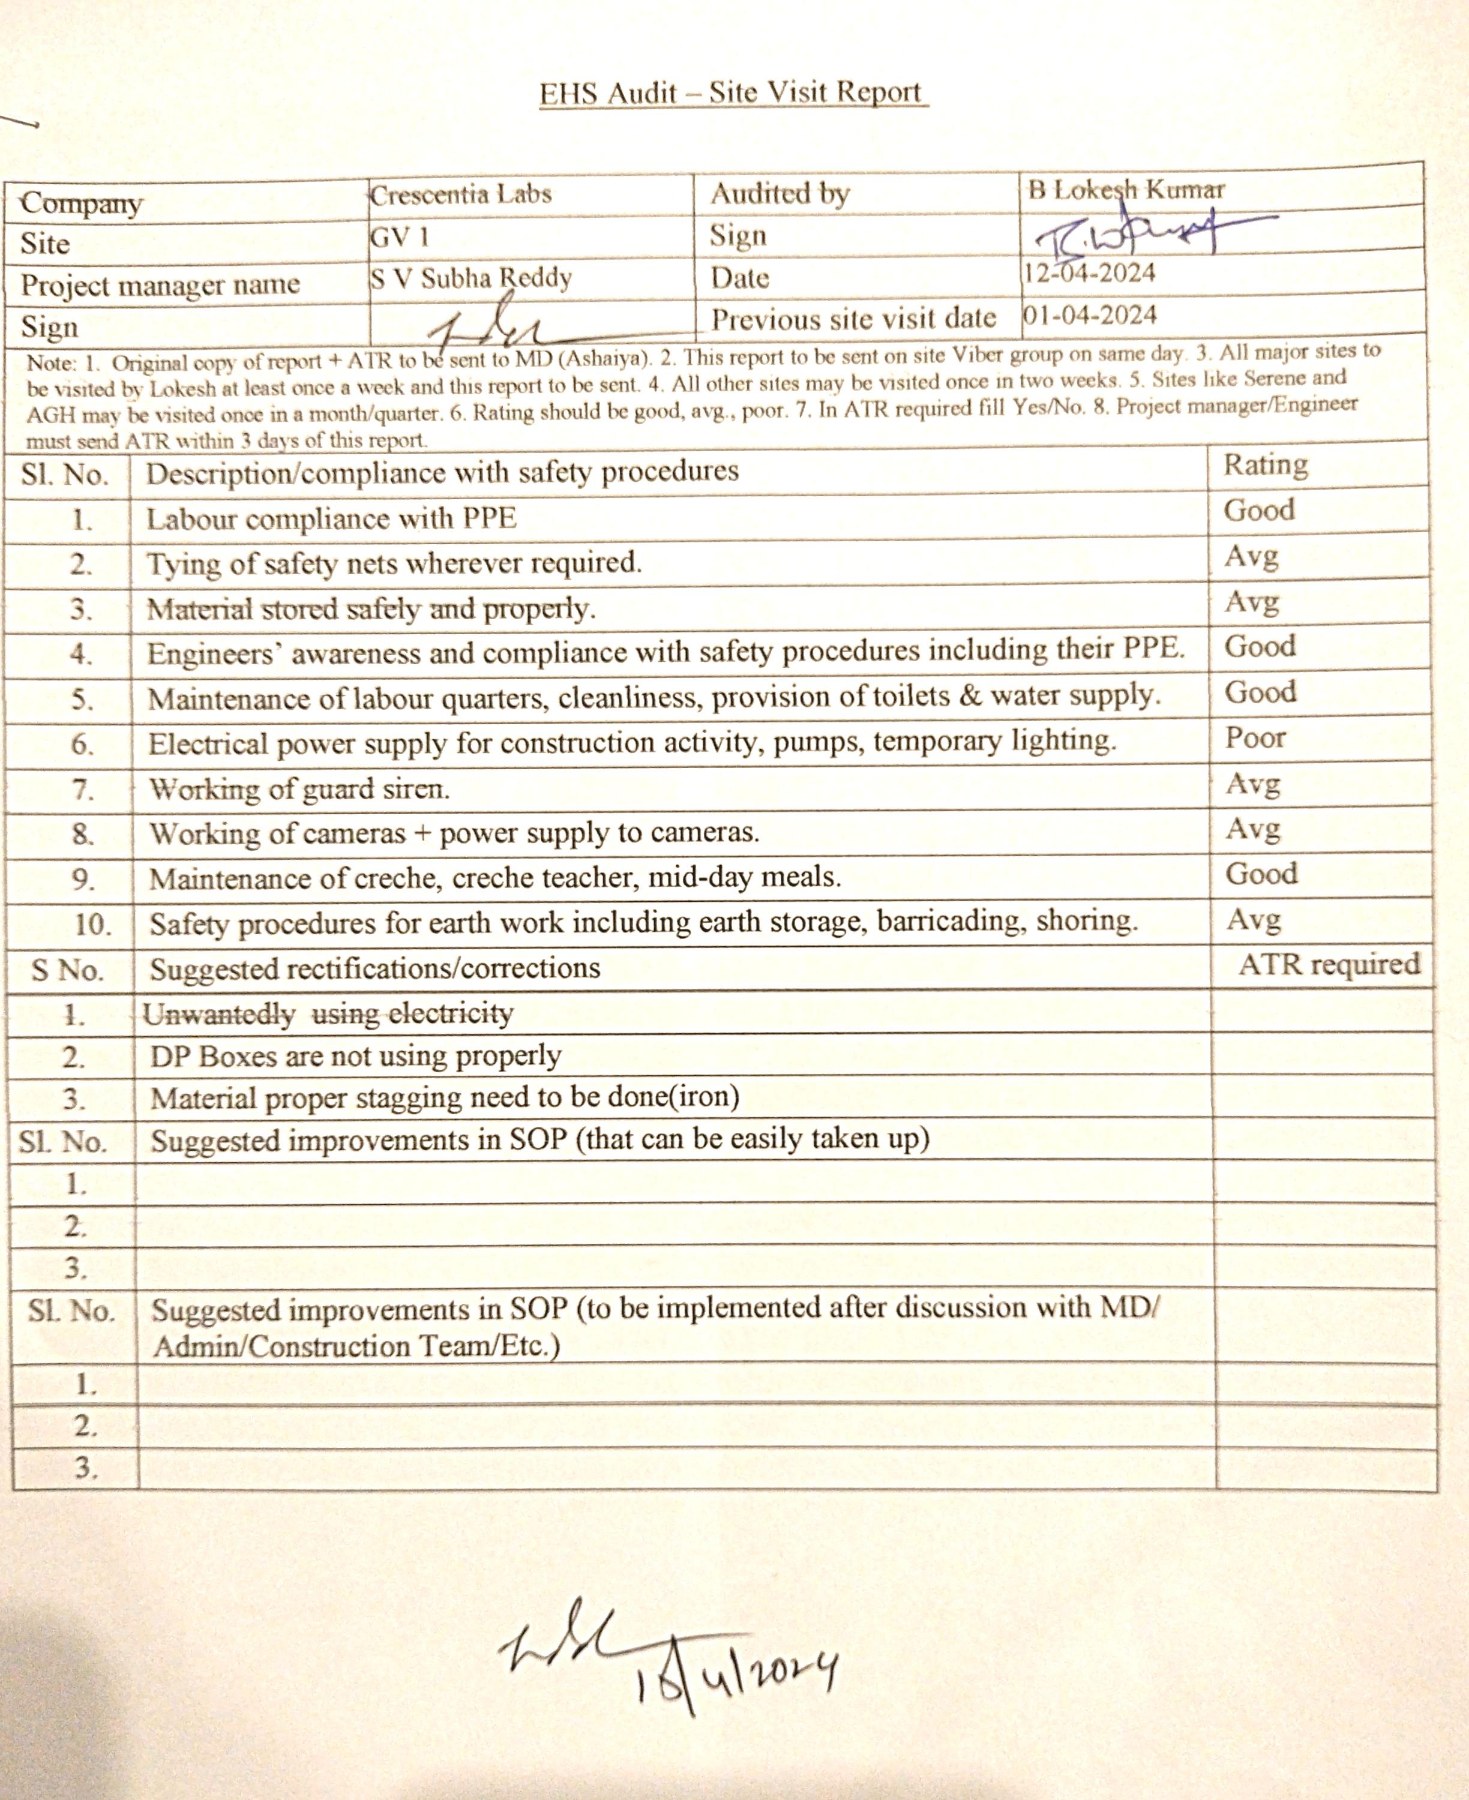 EHS Audit – Site Visit Report
Company Crescentia Labs Audited by B Lokesh Kumar
Site GV 1 Sign
Project manager name S V Subha Reddy Date 12-04-2024
Sign Previous site visit date 01-04-2024
Note: 1. Original copy of report + ATR to be sent to MD (Ashaiya). 2. This report to be sent on site Viber group on same day. 3. All major sites to
be visited by Lokesh at least once a week and this report to be sent. 4. All other sites may be visited once in two weeks. 5. Sites like Serene and
AGH may be visited once in a month/quarter. 6. Rating should be good, avg., poor. 7. In ATR required fill Yes/No. 8. Project manager/Engineer
must send ATR within 3 days of this report.
Sl. No. Description/compliance with safety procedures Rating
1. Labour compliance with PPE Good
2. Tying of safety nets wherever required. Avg
3. Material stored safely and properly. Avg
4. Engineers` awareness and compliance with safety procedures including their PPE. Good
5. Maintenance of labour quarters, cleanliness, provision of toilets & water supply. Good
6. Electrical power supply for construction activity, pumps, temporary lighting. Poor
7. Working of guard siren. Avg
8. Working of cameras + power supply to cameras. Avg
9. Maintenance of creche, creche teacher, mid-day meals. Good
10. Safety procedures for earth work including earth storage, barricading, shoring. Avg
S No. Suggested rectifications/corrections ATR required
1. Unwantedly using electricity
2. DP Boxes are not using properly
3. Material proper stagging need to be done(iron)
Sl. No. Suggested improvements in SOP (that can be easily taken up)
1.
2.
3.
Sl. No. Suggested improvements in SOP (to be implemented after discussion with MD/
Admin/Construction Team/Etc.)
1.
2.
3.